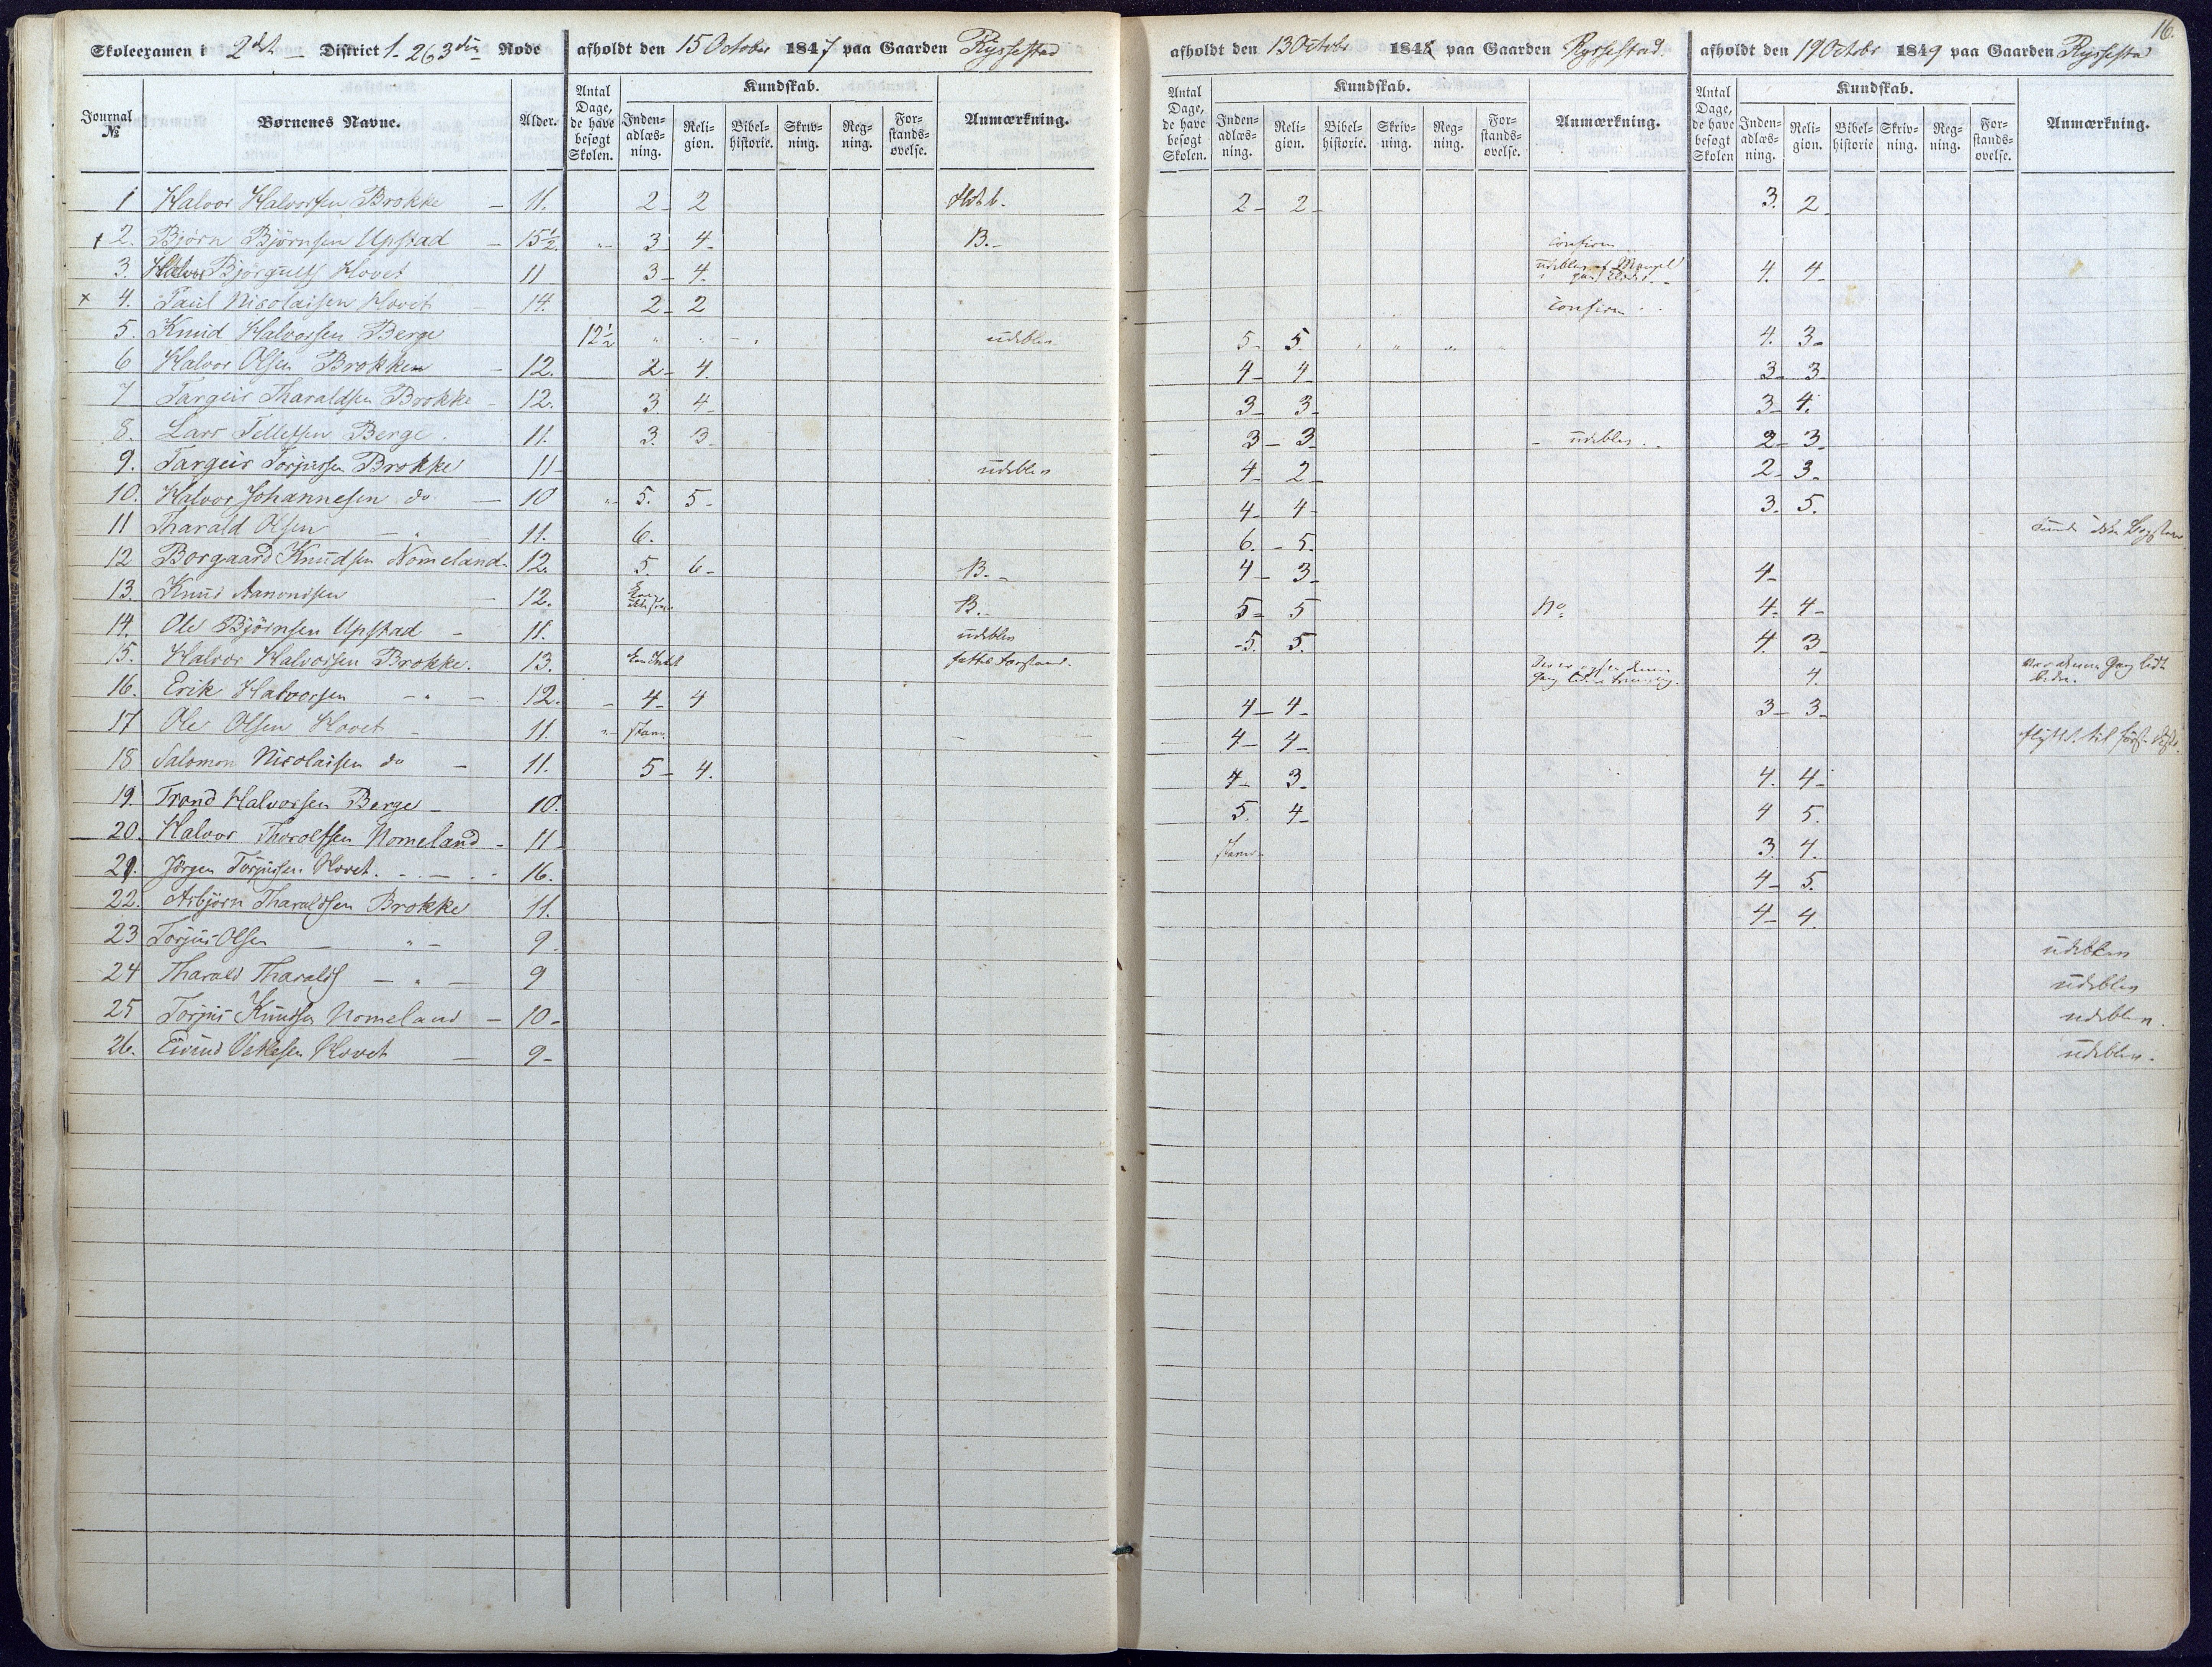 16.
Skoleexamen i 2det District 1. 2 & 3die Rode afholdt den 15 October 1847 paa Gaarden Ryssestad
afholdt den 13 Octobr 1848 paa Gaarden Ryssestad.
afholdt den 19 Octobr 1849 paa Gaarden Ryssestad
Journal № Børnenes Navne. Alder. Antal Dage, de have besøgt Skolen. Kundskab. Inden-adlæs-ning. Reli-gion. Bibel-historie. Skriv-ning. Reg-ning. For-stands-øvelse. Anmærkning.
Antal Dage, de have besøgt Skolen. Kundskab. Inden-adlæs-ning. Reli-gion. Bibel-historie. Skriv-ning. Reg-ning. For-stands-øvelse. Anmærkning.
Antal Dage, de have besøgt Skolen Kundskab. Inden-adlæs-ning. Reli-gion. Bibel-historie Skriv-ning. Reg-ning. For-stands-øvelse. Anmærkning.
1 Halvor Halvorsen Brokke - 11. 2 - 2 2 - 2 - 3. 2 -
+ 2. Bjørn Bjørnsen Upstad - 15½. „ - 3 4 - B. - confirm
3. Halvor Bjørgulfs Hovet 11 3 - 4. udeblev af Mangel 4. 4 -
x 4. Paul Nicolaisen Hovet - 14. 2 - 2 confirm
5. Knud Halvorsen Berge 12½ „ „ udeblev 5 - 5. „ „ „ 4. 3 -
6 Halvor Olsen Brokken - 12. 2 - 4. 4 - 4 3 - 3
7 Targeir Tharaldsen Brokke - 12. 3. 4 - 3 - 3 - 3 - 4.
8. Lars Tellefsen Berge. 11. 3. 3 - 3 - 3 - udeblev. 2 - 3 -
9. Targeir Torjussen Brokke 11 - udeblev 4 - 2 - 2 - 3 -
10. Halvor Johannesen do - 10 „ 5. 5 - 4 - 4 - 3. 5.
11 Tharald Olsen - „ - 11. 6. 6. - 5.
12 Borgaard Knudsen Nomeland - 12. 5. 6 - B. - 4 - 3 - 4 -
13. Knud Aanondsen - 12. B. - 5 - 5 4 - 4 -
14. Ole Bjørnsen Upstad - 11. udeblev - 5. 5. 4. 3 -
15. Halvor Halvorsen Brokke. 13. fattes Forstand. 4.
16. Erik Halvorsen - „ - 12. - 4 - 4 4 - 4 - 3 - 3 -
17 Ole Olsen Hovet - 11. „ - stav. 4 - 4 - flytt. til
18 Salomon Nicolaisen do - 11. 5 - 4. 4 - 3 - 4. 4 -
19. Trond Halvorsen Berge - 10. 5. 4 - 4 5.
20. Halvor Thorolfsen Nomeland - 11 - staver 3. 4.
21. Jörgen Torjussen Hovet. - 16. 4 - 5.
22. Asbjørn Tharaldsen Brokke 11. 4 - 4.
23 Torjus Olsen - „ - 9. udeblev
24 Tharald Tharalds - „ - 9 udeblev
25 Torjus Knudsen Nomeland - 10 - udeblev.
26. Eivind Vetlesen Hovet - 9 - udeblev.